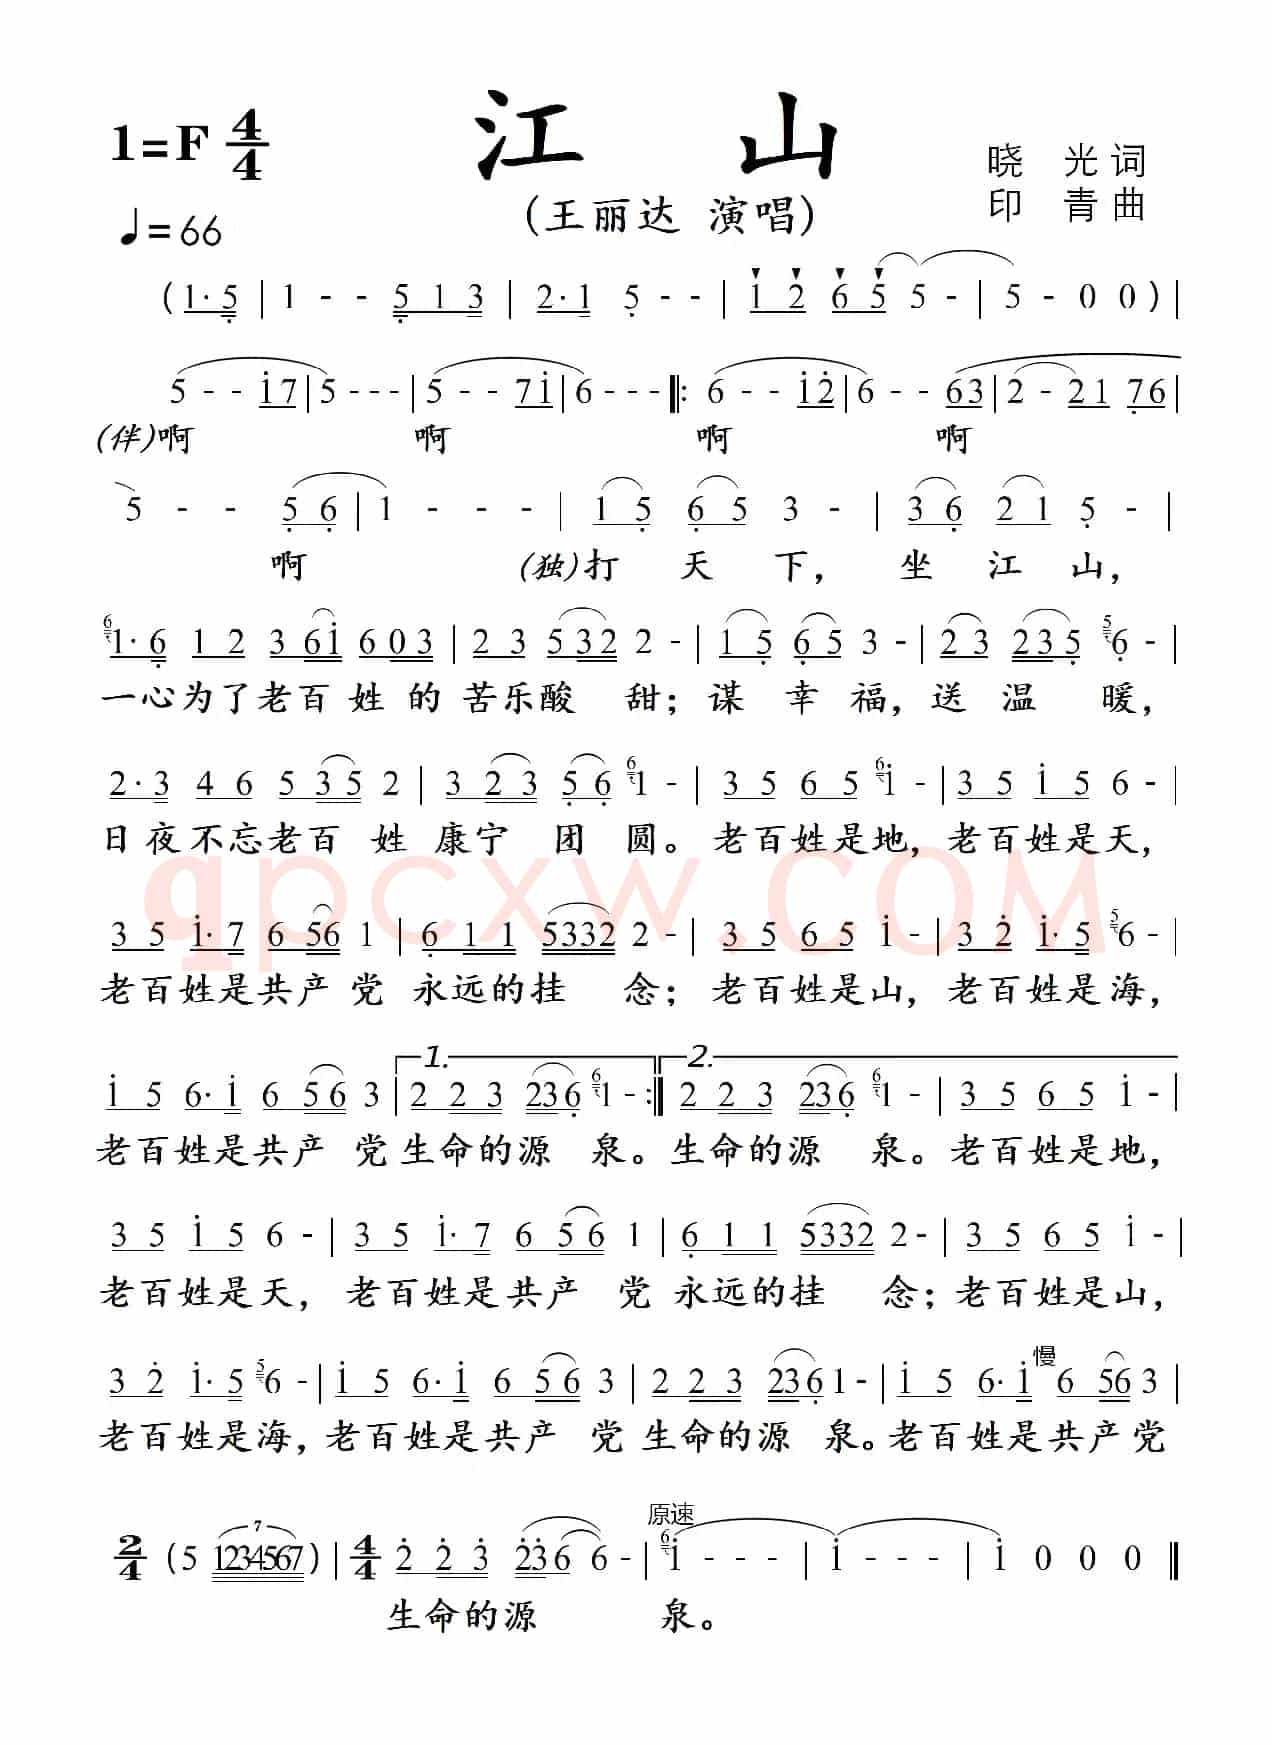 1=F 4/4 江 山 晓 光 词
♩=66 (王丽达 演唱) 印 青 曲
(1·5 | 1 - - 5 1 3 | 2·1 5 - - | 1 2 6 5 5 - | 5 - 0 0 ) |
5 - - i 7 | 5 - - - | 5 - - 7 i | 6 - - - ‖: 6 - - i 2 | 6 - - 6 3 | 2 - 2 1 7 6 |
(伴)啊 啊 啊 啊
5 - - 5 6 | 1 - - - | 1 5 6 5 3 - | 3 6 2 1 5 - |
啊 (独)打 天 下, 坐 江 山,
6 1·6 1 2 3 6 i 6 0 3 | 2 3 5 3 2 2 - | 1 5 6 5 3 - | 2 3 2 3 5 5 6 - |
一心为了老百 姓 的 苦乐酸 甜; 谋 幸 福, 送 温 暖,
2·3 4 6 5 3 5 2 | 3 2 3 5 6 6 1 - | 3 5 6 5 6 i - | 3 5 i 5 6 - |
日夜不忘老百 姓 康宁 团 圆。老百姓是地, 老百姓是天,
qpcxw.COM
3 5 i·7 6 5 6 1 | 6 1 1 5 3 3 2 2 - | 3 5 6 5 i - | 3 2 i·5 5 6 - |
老百姓是共产 党 永远的挂 念; 老百姓是山, 老百姓是海,
1. 2.
i 5 6·i 6 5 6 3 | 2 2 3 2 3 6 6 1 - :‖ 2 2 3 2 3 6 6 1 - | 3 5 6 5 i - |
老百姓是共产 党 生命的源 泉。生命的源 泉。老百姓是地,
3 5 i 5 6 - | 3 5 i·7 6 5 6 1 | 6 1 1 5 3 3 2 2 - | 3 5 6 5 i - |
老百姓是天, 老百姓是共产 党 永远的挂 念; 老百姓是山,
慢
3 2 i·5 5 6 - | i 5 6·i 6 5 6 3 | 2 2 3 2 3 6 1 - | i 5 6·i 6 5 6 3 |
老百姓是海, 老百姓是共产 党 生命的源 泉。老百姓是共产党
7 原速
2/4 (5 1 2 3 4 5 6 7) | 4/4 2 2 3 2 3 6 6 - | 6 i - - - | i - - - | i 0 0 0 ‖
生命的源 泉。